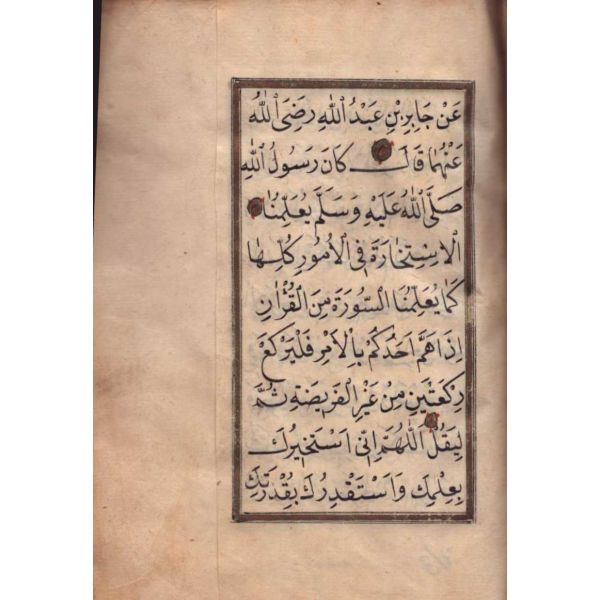 عَنْ جَابِرِ بْنِ عَبْدُ اللّٰهِ رَضِىَ اللّٰهُ
عَنْهُمَا قَالَ كَانَ رَسُولُ اللّٰهِ
صَلَّى اللّٰهُ عَلَيْهِ وَسَلَّمَ يُعَلِّمُنَا
الْاِسْتِخَارَةَ فِى الْاُمُورِ كُلِّهَا
كَمَا يُعَلِّمُنَا السُّورَةَ مِنَ الْقُرْاٰنِ
اِذَا هَمَّ اَحَدُكُمْ بِالْاَمْرِ فَلْيَرْكَعْ
رَكْعَتَيْنِ مِنْ غَيْرِ الْفَرِيضَةِ ثُمَّ
لِيَقُلْ اَللّٰهُمَّ اِنِّى اَسْتَخِيرُكَ
بِعِلْمِكَ وَاَسْتَقْدِرُكَ بِقُدْرَتِكَ